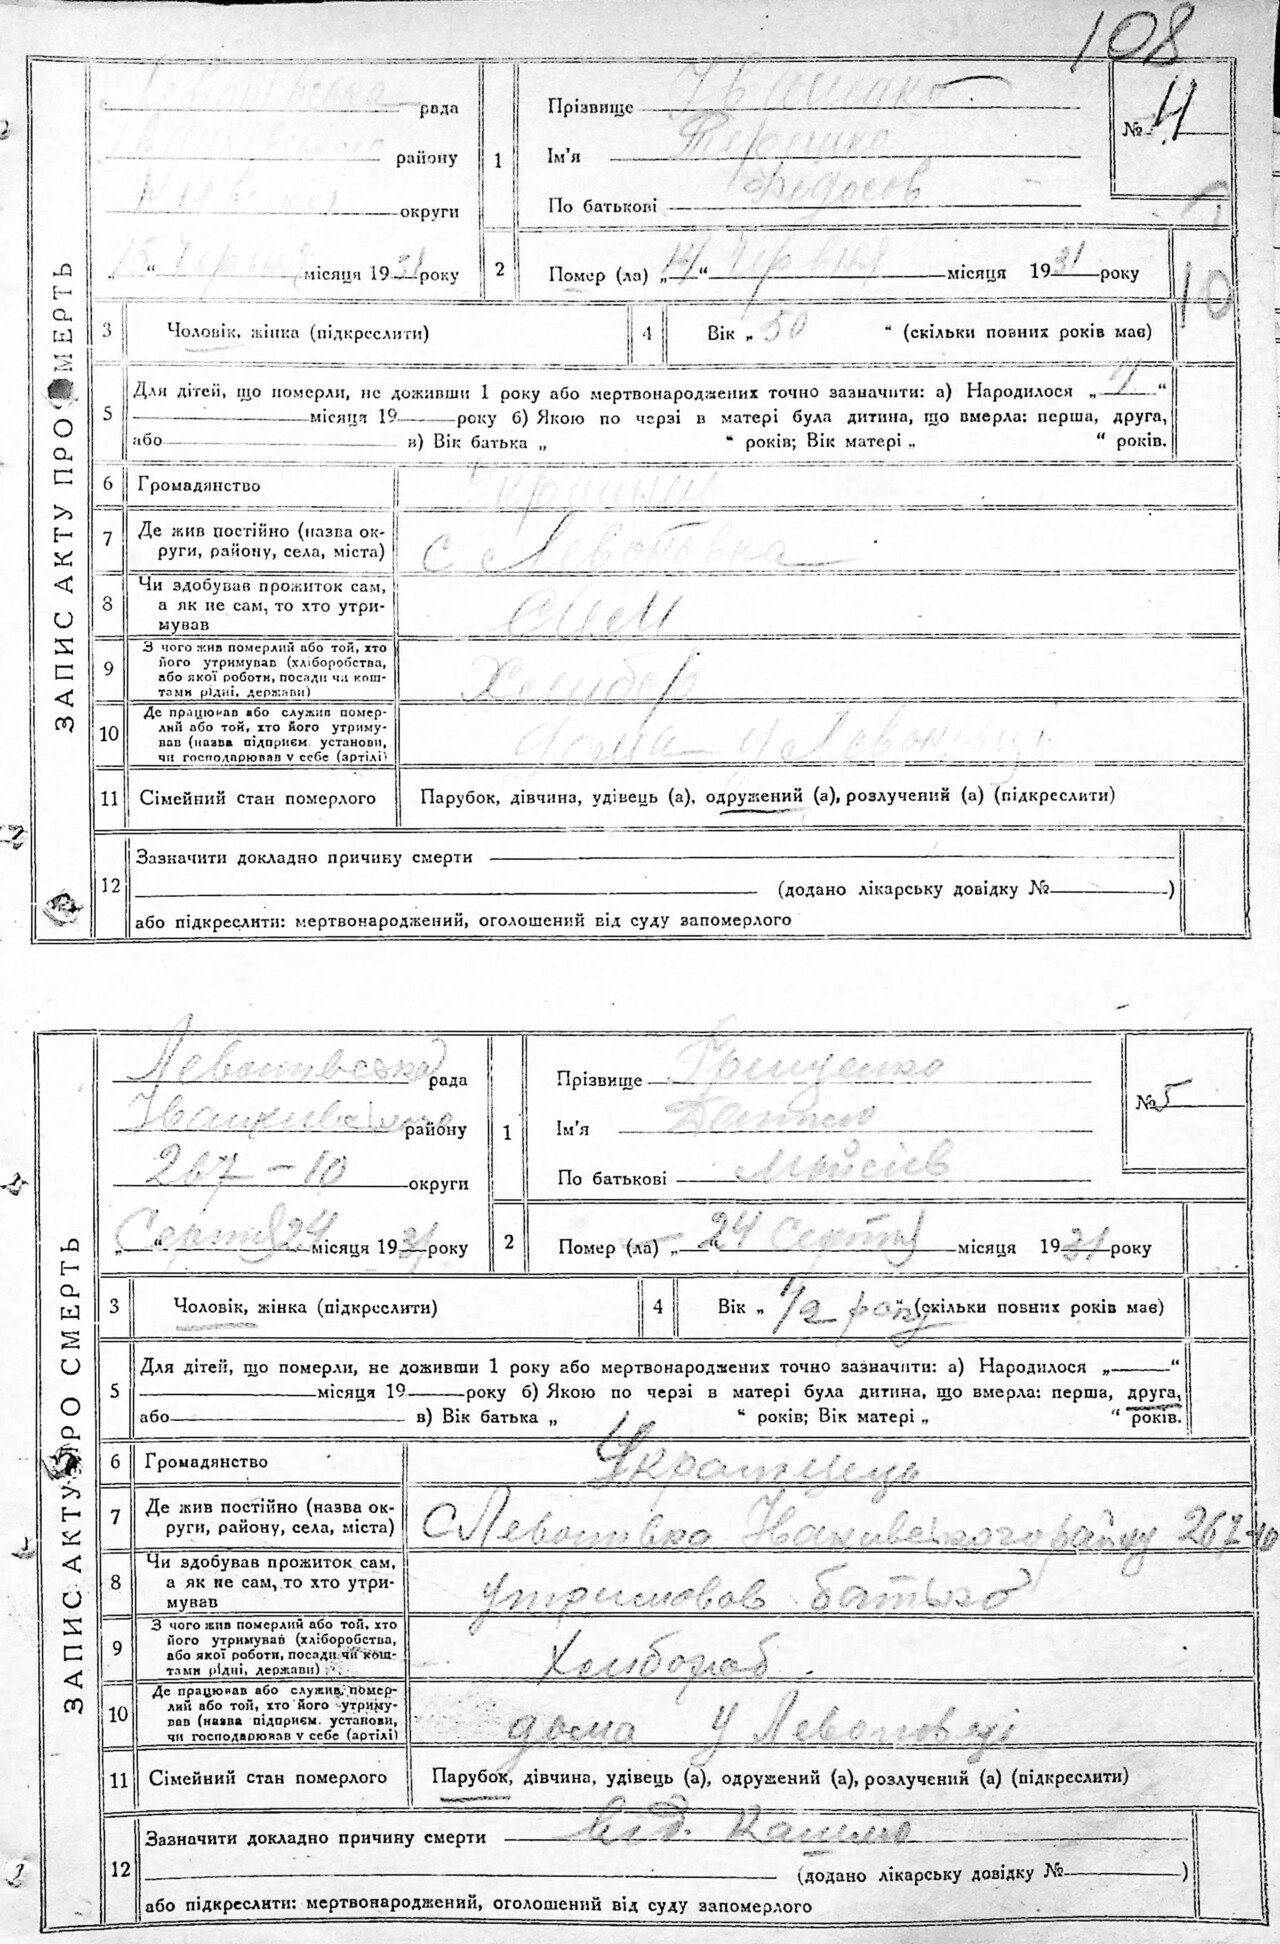 108
ЗАПИС АКТУ ПРО СМЕРТЬ
рада
району
округи
„15“ Червня місяця 1931 року
1
Прізвище Іваненко
Ім'я Терешко
По батькові Федосов
№ 4
2
Помер (ла) „14“ Червня місяця 1931 року
10
3
Чоловік, жінка (підкреслити)
4
Вік „50“ (скільки повних років має)
5
Для дітей, що померли, не доживши 1 року або мертвонароджених точно зазначити: а) Народилося „ “
місяця 19 року б) Якою по черзі в матері була дитина, що вмерла: перша, друга,
або в) Вік батька „ “ років; Вік матері „ “ років.
6
Громадянство
7
Де жив постійно (назва ок-
руги, району, села, міста)
с Левоновка
8
Чи здобував прожиток сам,
а як не сам, то хто утри-
мував
сам
9
З чого жив померлий або той, хто
його утримував (хліборобства,
або якої роботи, посади чи кош-
тами рідні, держави)
10
Де працював або служив помер-
лий або той, хто його утриму-
вав (назва підприєм. установи,
чи господарював у себе (артілі)
дома у
11
Сімейний стан померлого
Парубок, дівчина, удівець (а), одружений (а), розлучений (а) (підкреслити)
12
Зазначити докладно причину смерти
(додано лікарську довідку № )
або підкреслити: мертвонароджений, оголошений від суду запомерлого
ЗАПИС АКТУ ПРО СМЕРТЬ
рада
району
267-10 округи
„ “ Серпня 24 місяця 1931 року
1
Прізвище Грищенко
Ім'я
По батькові Мойсієв
№ 5
2
Помер (ла) „24“ Серпня місяця 1931 року
3
Чоловік, жінка (підкреслити)
4
Вік „1/2 року“ (скільки повних років має)
5
Для дітей, що померли, не доживши 1 року або мертвонароджених точно зазначити: а) Народилося „ “
місяця 19 року б) Якою по черзі в матері була дитина, що вмерла: перша, друга,
або в) Вік батька „ “ років; Вік матері „ “ років.
6
Громадянство
Українець
7
Де жив постійно (назва ок-
руги, району, села, міста)
С району 267-10
8
Чи здобував прожиток сам,
а як не сам, то хто утри-
мував
утримовов батько
9
З чого жив померлий або той, хто
його утримував (хліборобства,
або якої роботи, посади чи кош-
тами рідні, держави)
Хлибороб
10
Де працював або служив помер-
лий або той, хто його утриму-
вав (назва підприєм. установи,
чи господарював у себе (артілі)
дома у
11
Сімейний стан померлого
Парубок, дівчина, удівець (а), одружений (а), розлучений (а) (підкреслити)
12
Зазначити докладно причину смерти від
(додано лікарську довідку № )
або підкреслити: мертвонароджений, оголошений від суду запомерлого